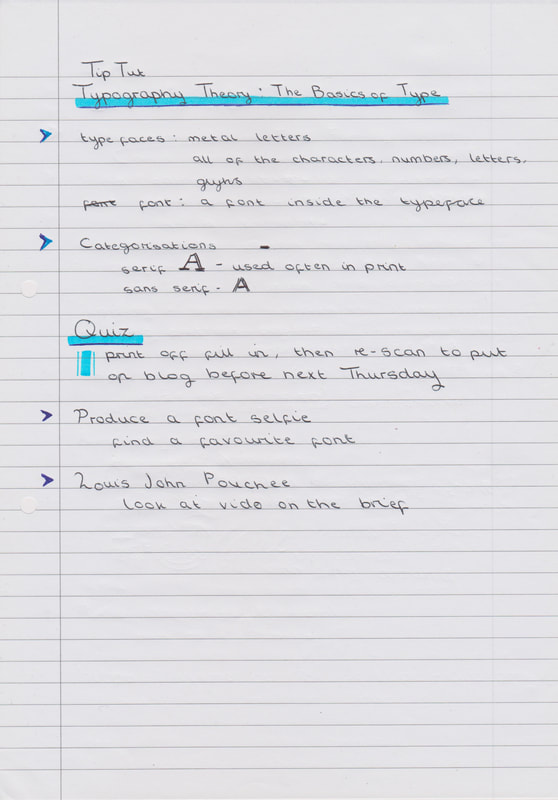 Tip Tut
Typography Theory · The Basics of Type
typefaces : metal letters
all of the characters, numbers, letters,
glyhs
font font : a font inside the typeface
Categorisations
serif A - used often in print
sans serif - A
Quiz
print off fill in, then re-scan to put
on blog before next Thursday
Produce a font selfie
find a favourite font
Louis John Pouchee
look at vido on the brief